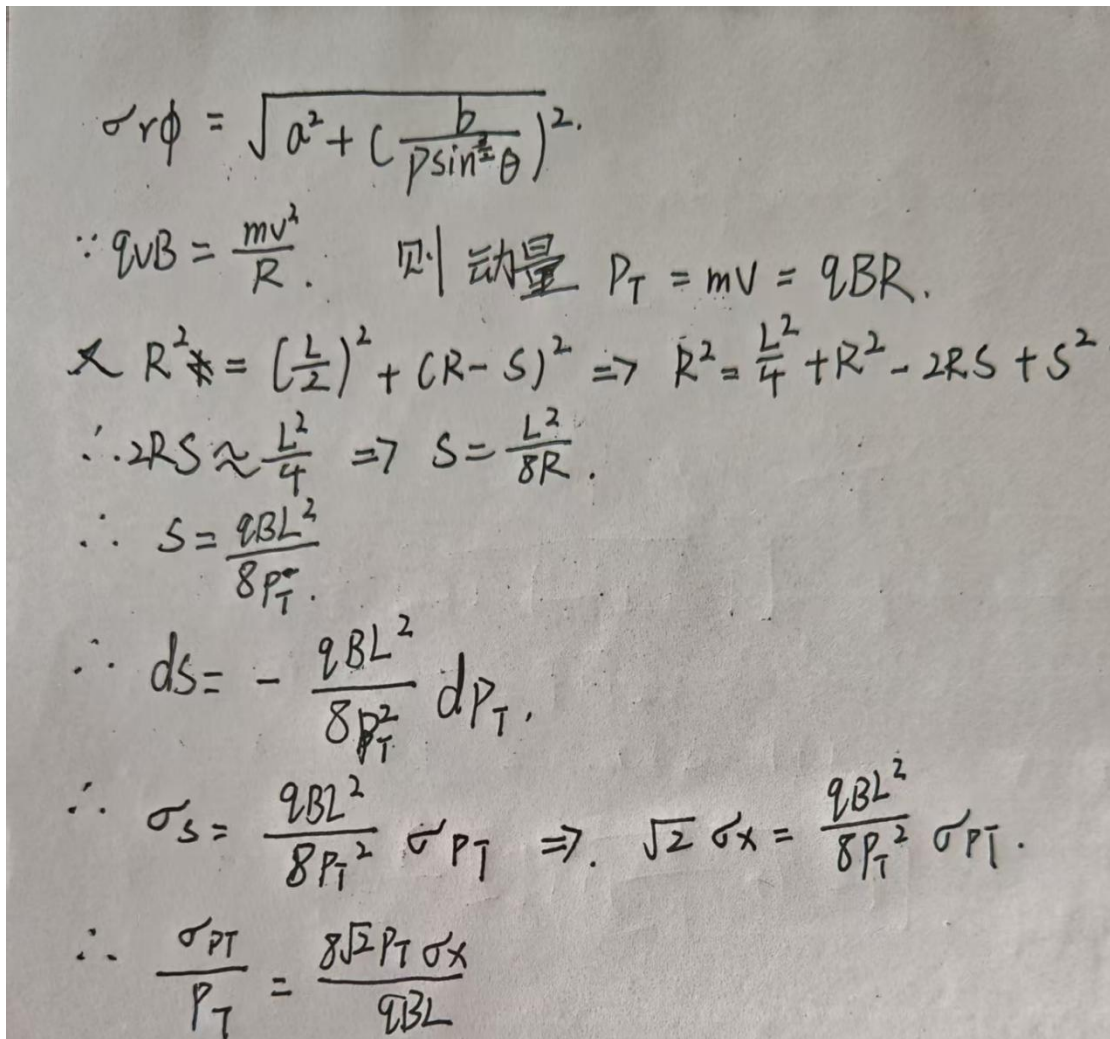 σrφ = √(a² + (b/(p sin^{3/2} θ))²).
∵ qvB = mv²/R. 则 动量 P_T = mv = qBR.
又 R² = (L/2)² + (R - S)² => R² = L²/4 + R² - 2RS + S²
∴ 2RS ≈ L²/4 => S = L²/8R.
∴ S = qBL²/8P_T.
∴ dS = - qBL²/8P_T² dP_T,
∴ σ_S = qBL²/8P_T² σ_{P_T} =>. √2 σx = qBL²/8P_T² σ_{P_T}.
∴ σ_{P_T}/P_T = 8√2 P_T σx/qBL